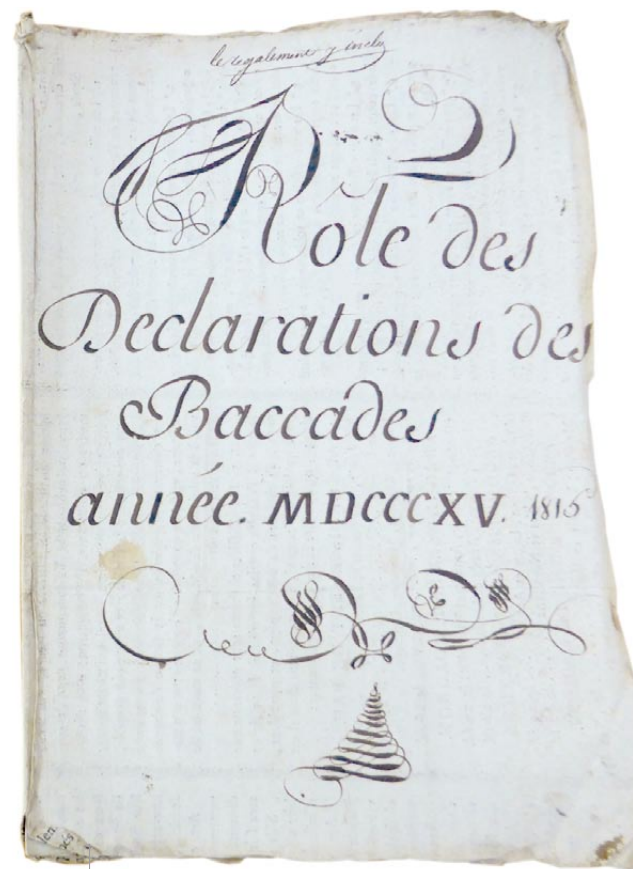 le regalement y inclu
Rôle des
Declarations des
Baccades
année. MDCCCXV. 1815